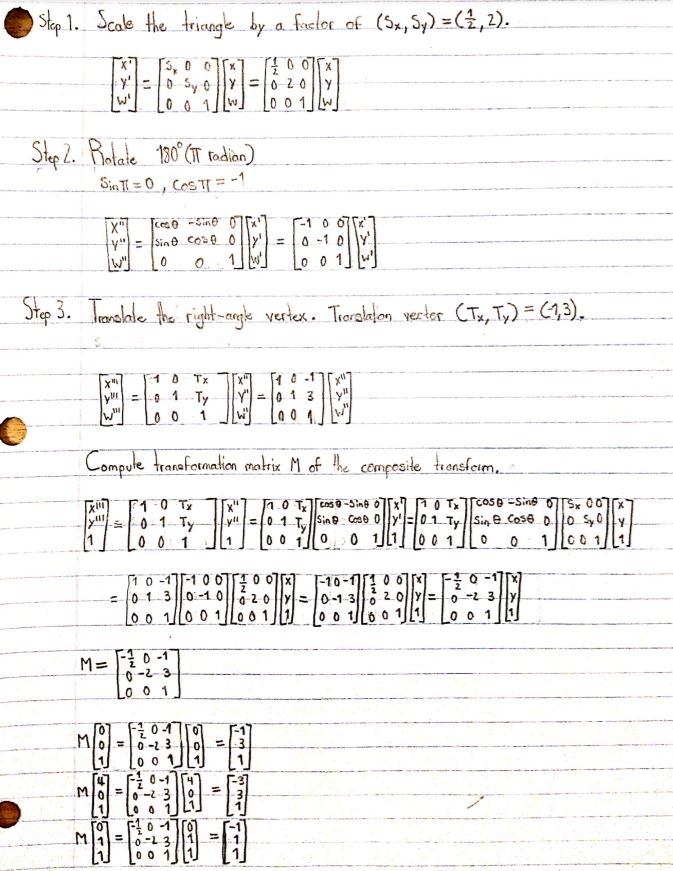 Step 1. Scale the triangle by a factor of (Sx, Sy) = (1/2, 2).
[x' y' w'] = [Sx 0 0; 0 Sy 0; 0 0 1] [x y w] = [1/2 0 0; 0 2 0; 0 0 1] [x y w]
Step 2. Rotate 180° (π radian)
Sin π = 0 , Cos π = -1
[x'' y'' w''] = [cosθ -sinθ 0; sinθ cosθ 0; 0 0 1] [x' y' w'] = [-1 0 0; 0 -1 0; 0 0 1] [x' y' w']
Step 3. Translate the right-angle vertex. Translation vector (Tx, Ty) = (-1,3).
[x''' y''' w'''] = [1 0 Tx; 0 1 Ty; 0 0 1] [x'' y'' w''] = [1 0 -1; 0 1 3; 0 0 1] [x'' y'' w'']
Compute transformation matrix M of the composite transform.
[x''' y''' 1] = [1 0 Tx; 0 1 Ty; 0 0 1] [x'' y'' 1] = [1 0 Tx; 0 1 Ty; 0 0 1] [cosθ -sinθ 0; sinθ cosθ 0; 0 0 1] [x' y' 1] = [1 0 Tx; 0 1 Ty; 0 0 1] [cosθ -sinθ 0; sinθ cosθ 0; 0 0 1] [Sx 0 0; 0 Sy 0; 0 0 1] [x y 1]
= [1 0 -1; 0 1 3; 0 0 1] [-1 0 0; 0 -1 0; 0 0 1] [1/2 0 0; 0 2 0; 0 0 1] [x y 1] = [-1 0 -1; 0 -1 3; 0 0 1] [1/2 0 0; 0 2 0; 0 0 1] [x y 1] = [-1/2 0 -1; 0 -2 3; 0 0 1] [x y 1]
M = [-1/2 0 -1; 0 -2 3; 0 0 1]
M [0 0 1] = [-1/2 0 -1; 0 -2 3; 0 0 1] [0 0 1] = [-1 3 1]
M [4 0 1] = [-1/2 0 -1; 0 -2 3; 0 0 1] [4 0 1] = [-3 3 1]
M [0 1 1] = [-1/2 0 -1; 0 -2 3; 0 0 1] [0 1 1] = [-1 1 1]